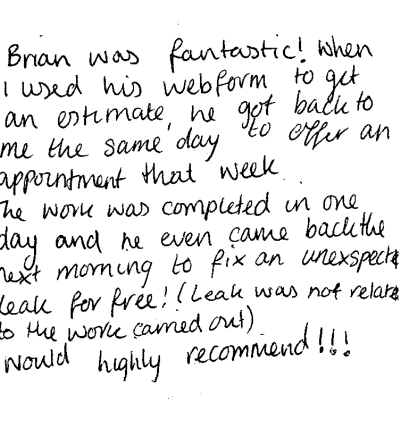 Brian was fantastic! When
I used his webform to get
an estimate, he got back to
me the same day to offer an
appointment that week.
The work was completed in one
day and he even came back the
next morning to fix an unexspecte
leak for free! (Leak was not relate
to the work carried out)
Would highly recommend!!!